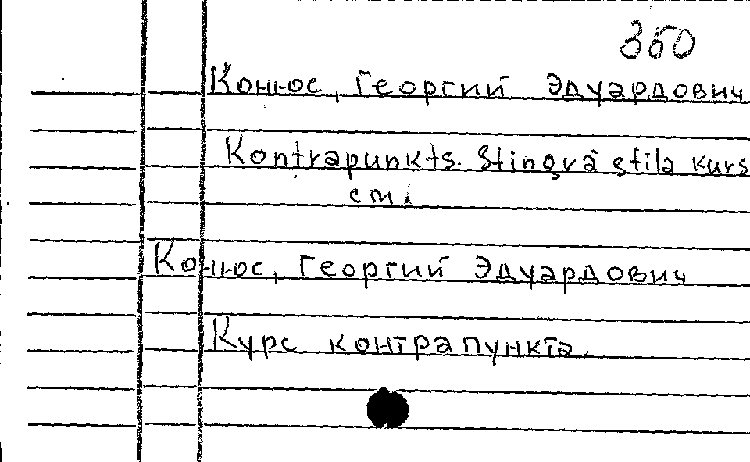 350
Конюс, Георгий Эдуардович
Kontrapunkts. Stingrā stila kurs
см.
Конюс, Георгий Эдуардович
Курс контрапункта.